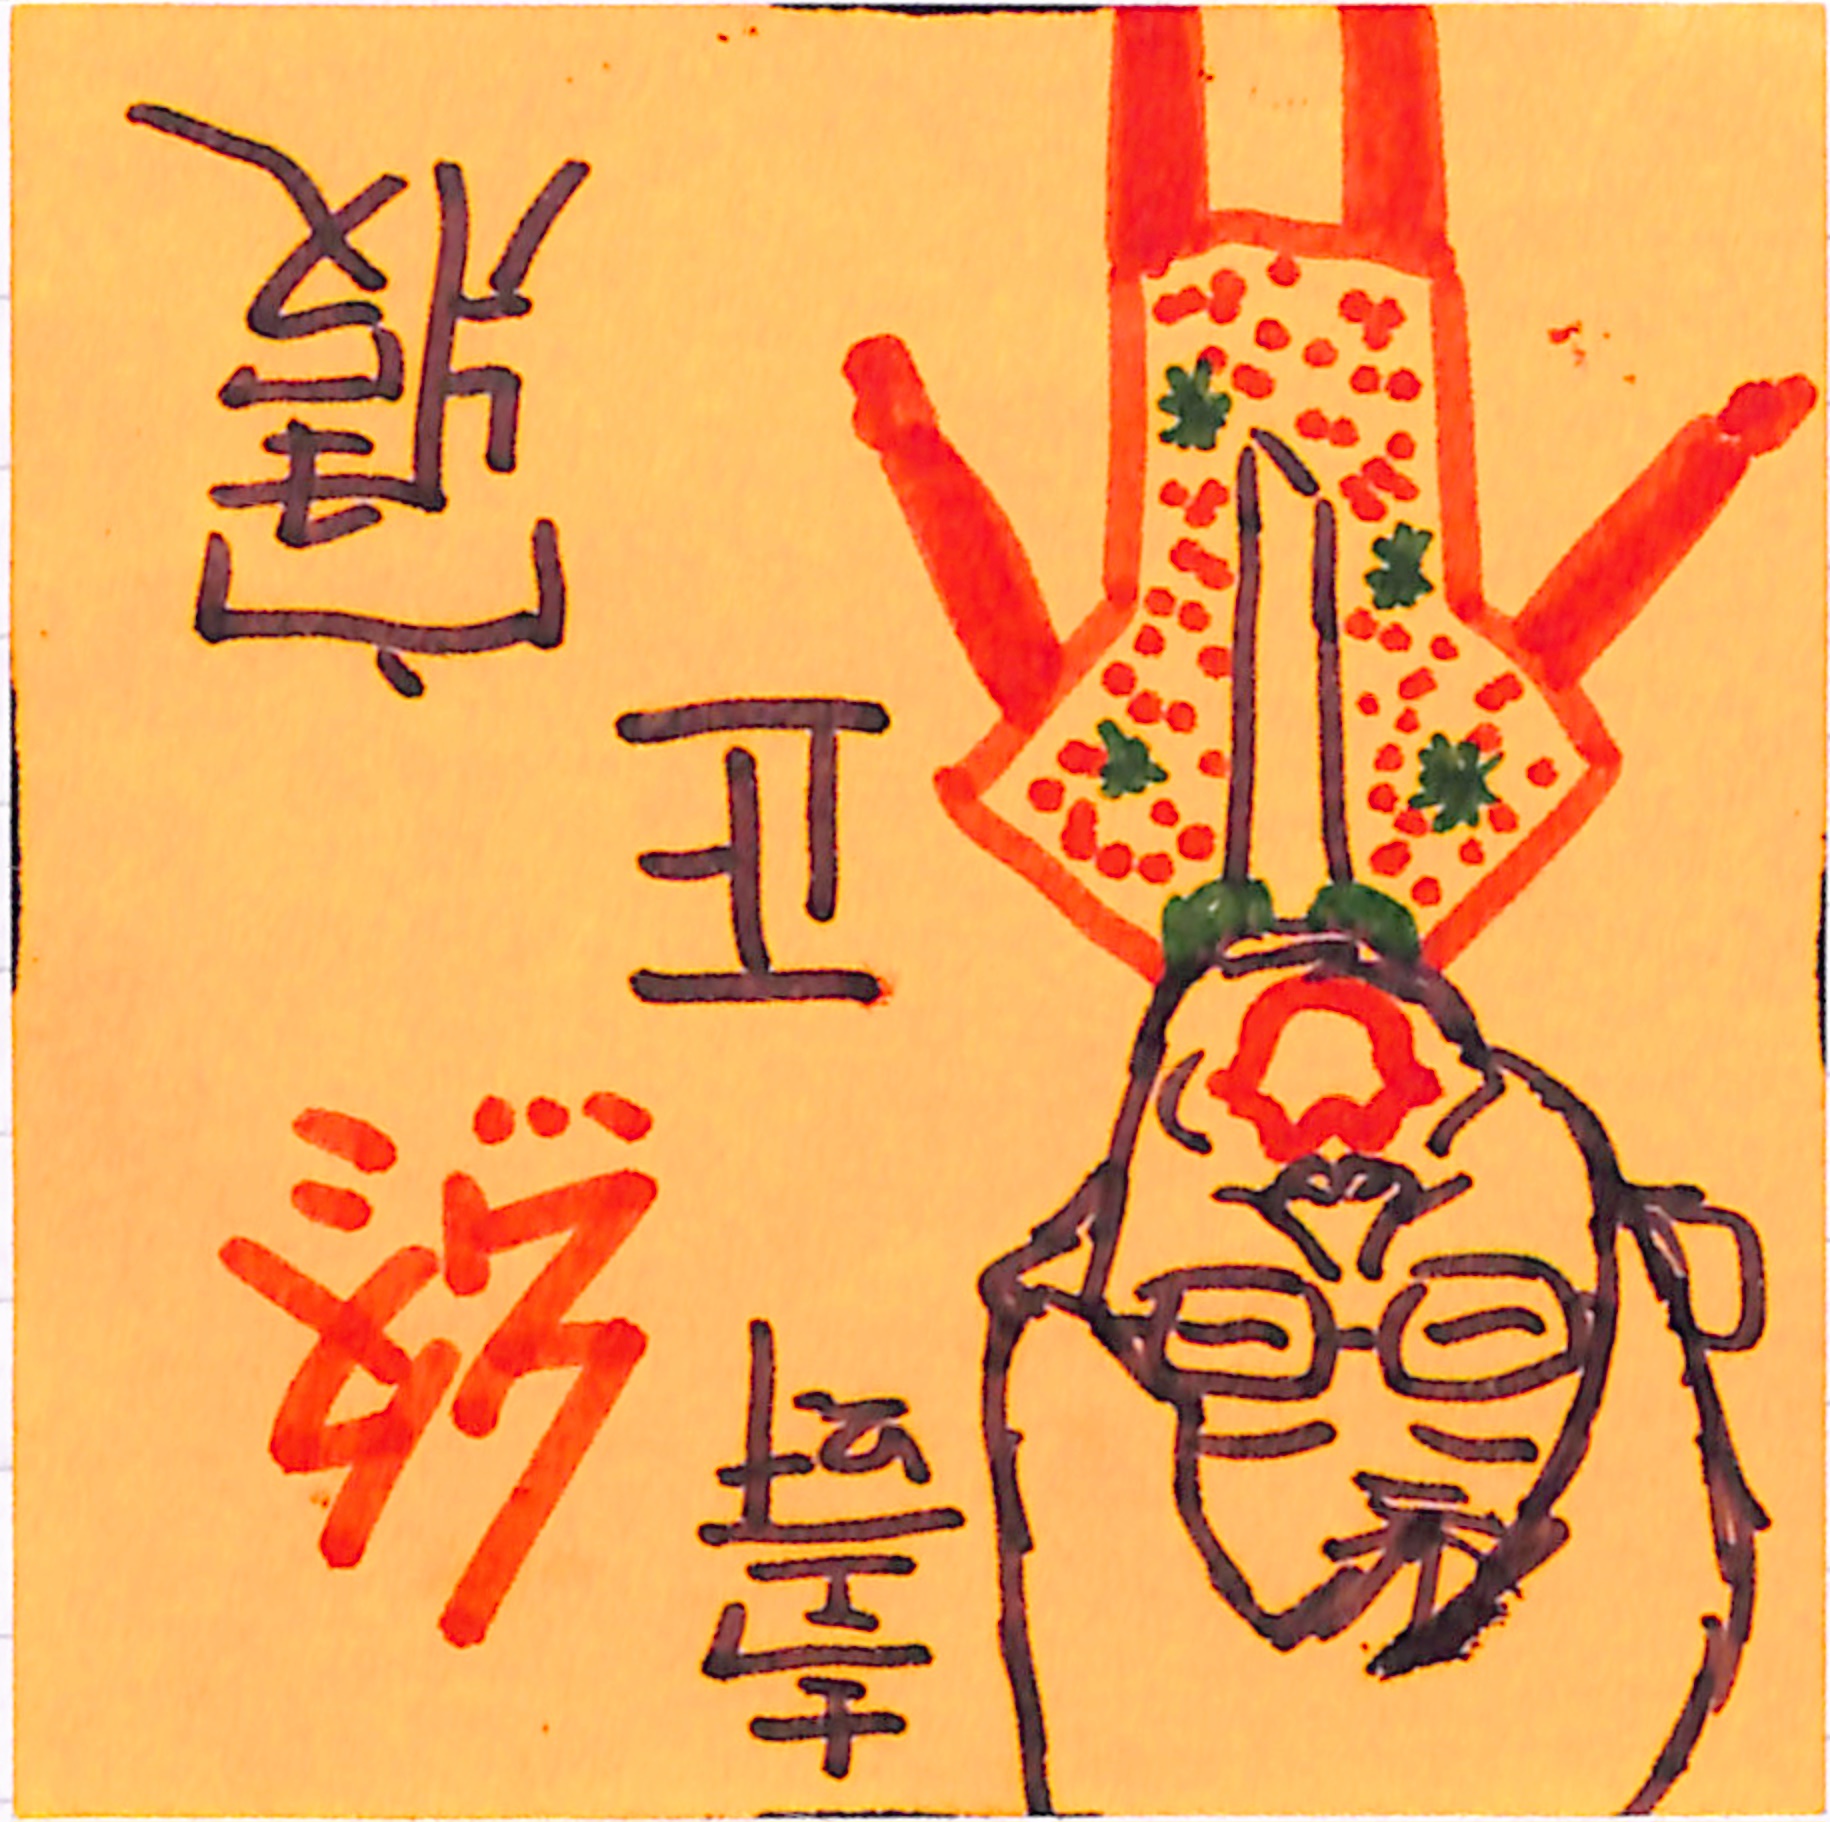 壽終正寢